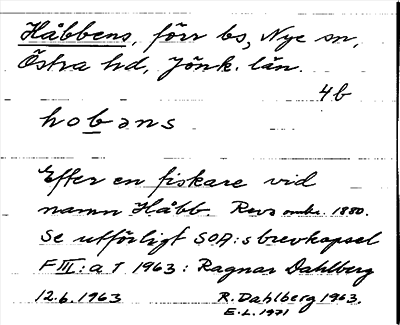 Håbbens, förr bs, Nye sn,
Östra hd, Jönk. län.
4b
hobəns
Efter en fiskare vid
namn Håbb. Revs omkr. 1880.
Se utförligt SOA:s brevkapsel
F III:a 1 1963: Ragnar Dahlberg
12.6.1963 R. Dahlberg 1963.
E.L. 1971